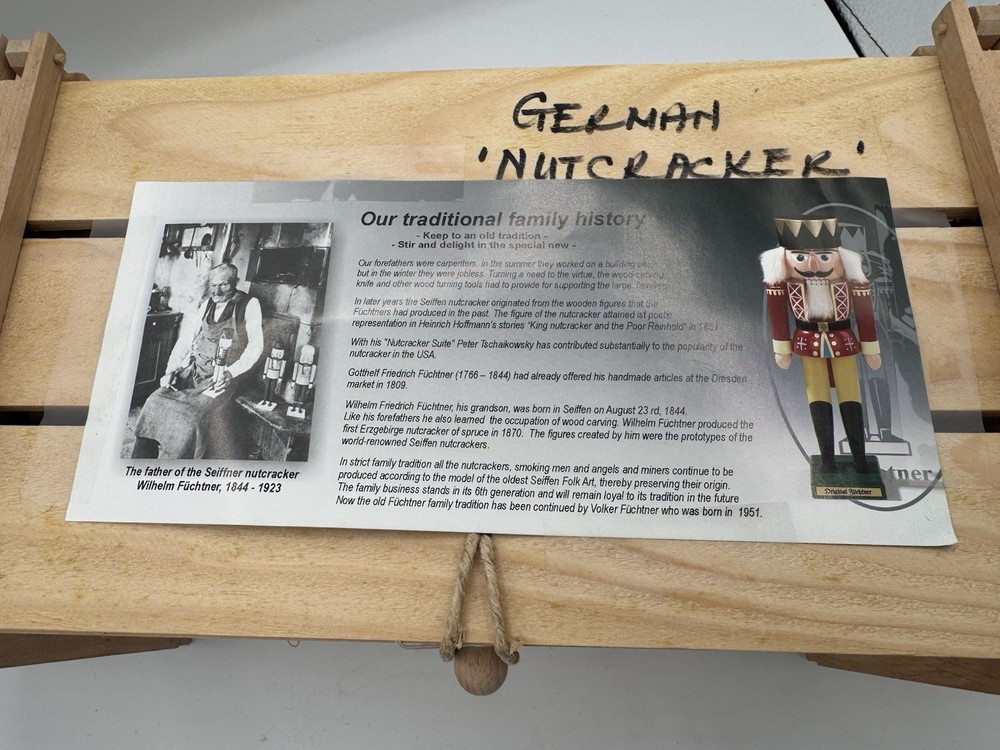 GERMAN
'NUTCRACKER'
Our traditional family history
- Keep to an old tradition -
- Stir and delight in the special new -
Our forefathers were carpenters, in the summer they worked on a building
but in the winter they were jobless. Turning a need to the virtue, the wood-carving
knife and other wood turning tools had to provide for supporting the large
In later years the Seiffen nutcracker originated from the wooden figures that the
Füchtners had produced in the past. The figure of the nutcracker attained ist poetic
representation in Heinrich Hoffmann's stories "King nutcracker and the Poor Reinhold" in
With his "Nutcracker Suite" Peter Tschaikowsky has contributed substantially to the popularity of the
nutcracker in the USA.
Gotthelf Friedrich Füchtner (1766 – 1844) had already offered his handmade articles at the Dresden
market in 1809.
Wilhelm Friedrich Füchtner, his grandson, was born in Seiffen on August 23 rd, 1844.
Like his forefathers he also learned the occupation of wood carving. Wilhelm Füchtner produced the
first Erzgebirge nutcracker of spruce in 1870. The figures created by him were the prototypes of the
world-renowned Seiffen nutcrackers.
In strict family tradition all the nutcrackers, smoking men and angels and miners continue to be
produced according to the model of the oldest Seiffen Folk Art, thereby preserving their origin.
The family business stands in its 6th generation and will remain loyal to its tradition in the future
Now the old Füchtner family tradition has been continued by Volker Füchtner who was born in 1951.
The father of the Seiffner nutcracker
Wilhelm Füchtner, 1844 - 1923
Original Füchtner
tner